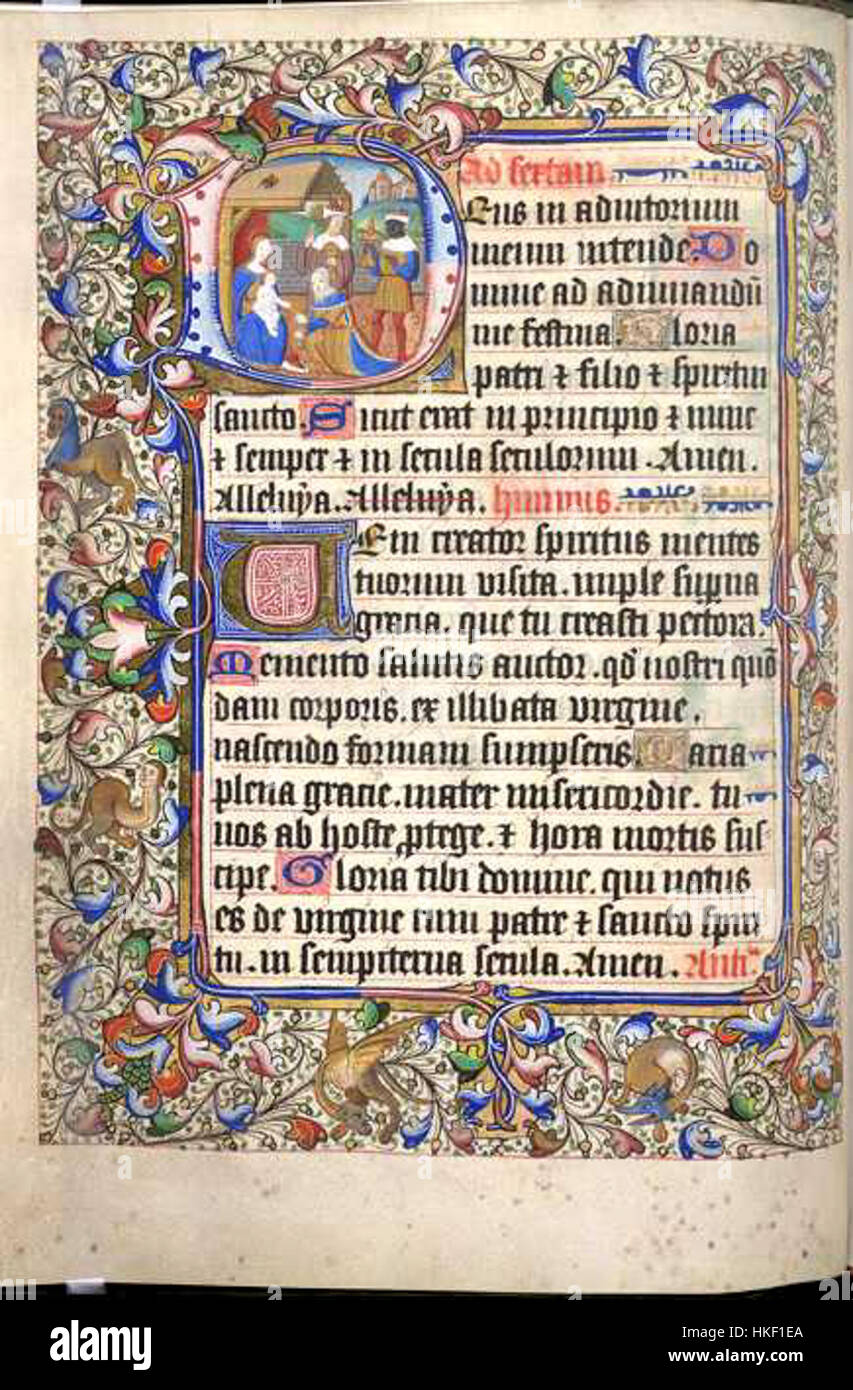 Ad sextam
Deus in adiutorium
meum intende. Do
mine ad adiuuandū
me festina. Gloria
patri ⁊ filio ⁊ spiritui
sancto. Sicut erat in principio ⁊ nunc
⁊ semper ⁊ in secula seculorum. Amen.
Alleluya. Alleluya. himnus.
Veni creator spiritus mentes
tuorum visita. imple sup̄na
gratia. que tu creasti pectora.
Memento salutis auctor. qd̄ nostri quō
dam corporis. ex illibata virgine.
nascendo formam sumpseris. Maria
plena gracie. mater misericordie. tu
nos ab hoste ꝓtege. ⁊ hora mortis sus
cipe. Gloria tibi domine. qui natus
es de virgine cum patre ⁊ sancto spiri
tu. in sempiterna secula. Amen. Anth᷒.
alamy stock photo
HKF1EA
www.alamy.com